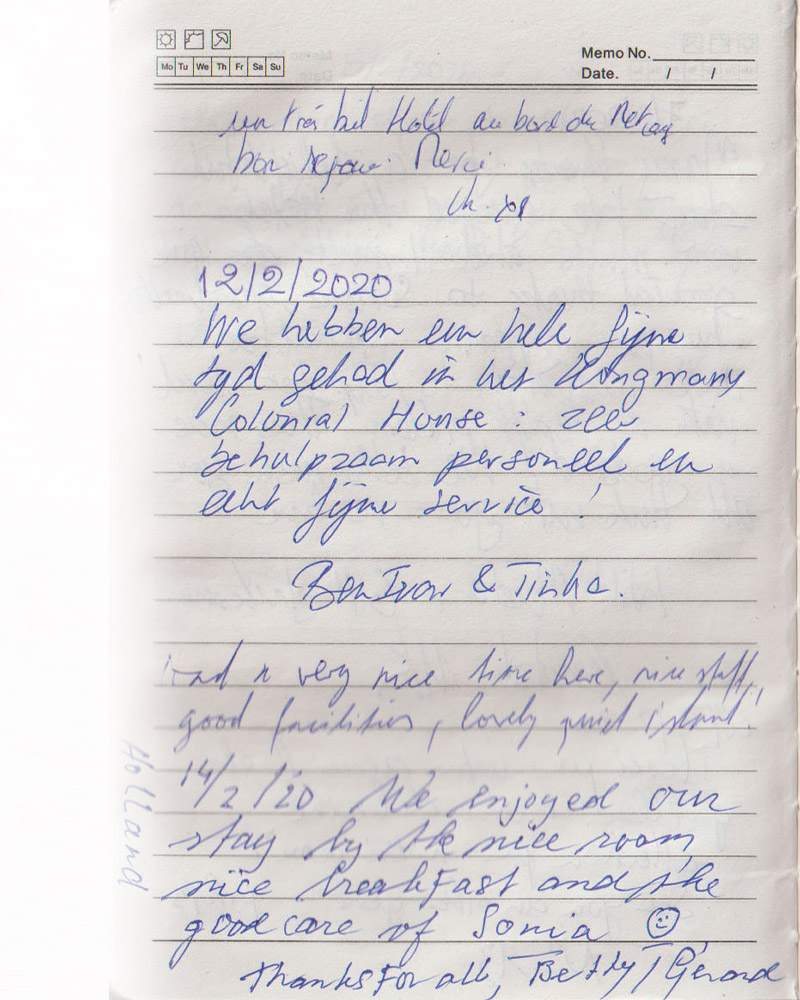 Mo Tu We Th Fr Sa Su
Memo No.
Date. / /
un très bel Hotel au bord du Mekong
bon séjour. Merci.
12/2/2020
We hebben een hele fijne
tijd gehad in het Kongmany
Colonial House : zeer
behulpzaam personeel en
echt fijne service !
& Tinka.
Had a very nice time here, nice staff,
good facilities, lovely quiet island.
14/2/'20 We enjoyed our
stay by the nice room,
nice breakfast and the
good care of Sonia
Thanks For all, Betty / Gerard
Holland